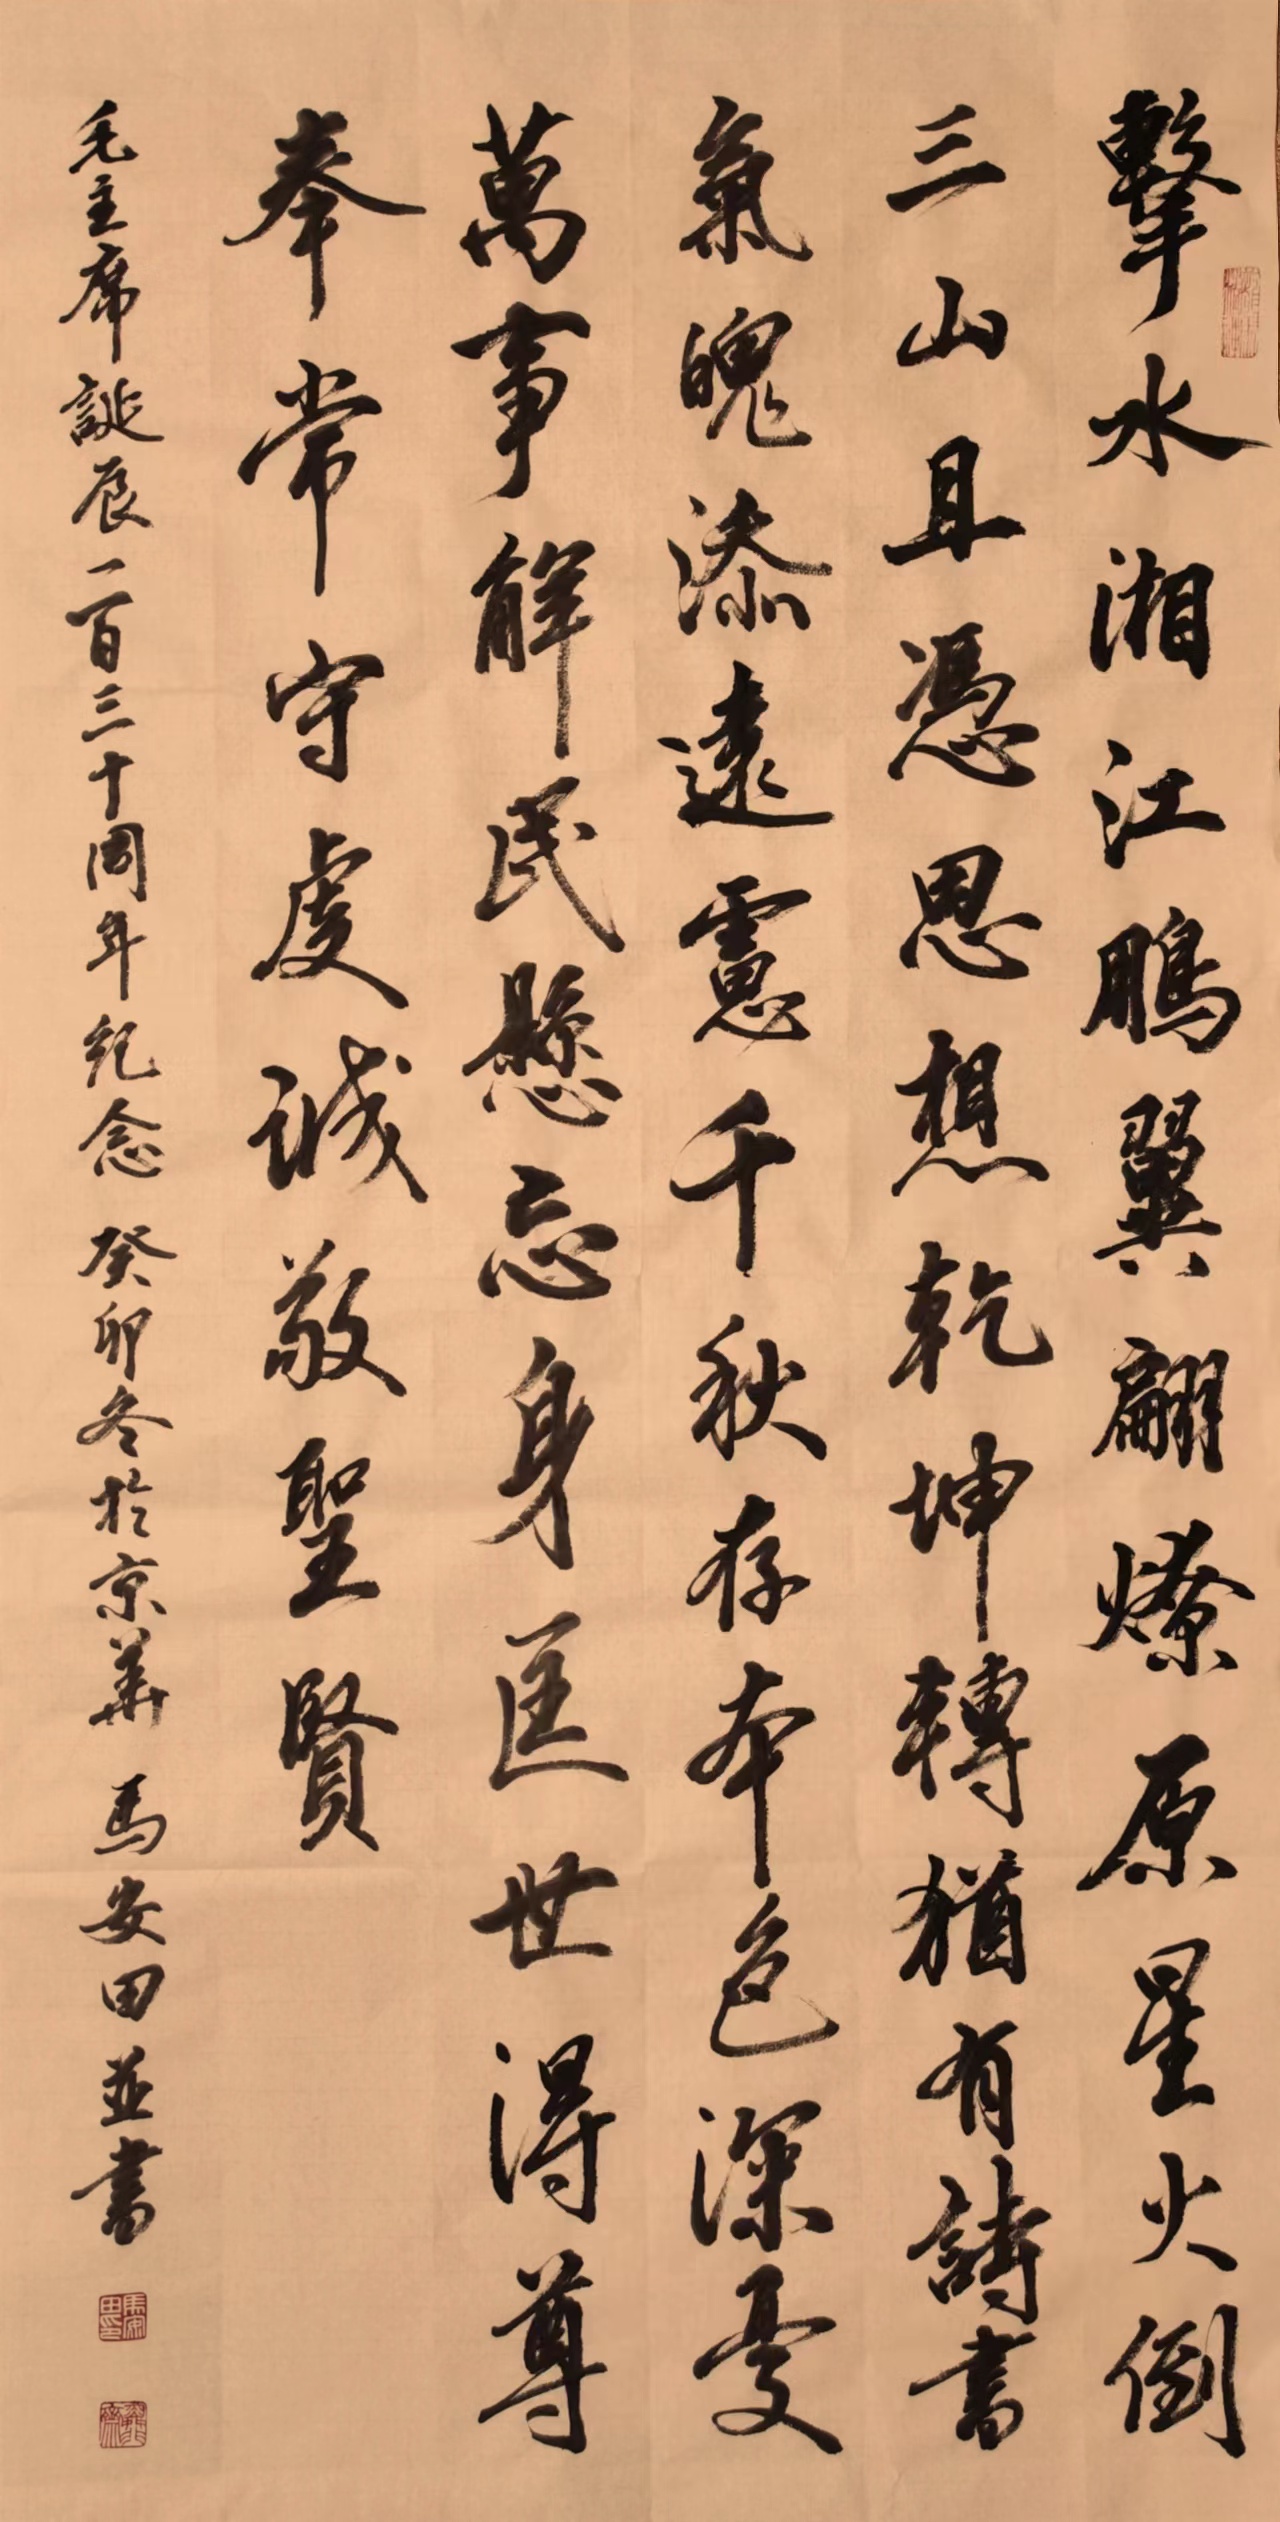 擊水湘江鵬翼翩燎原星火倒
三山且憑思想乾坤轉猶有詩書
氣魄添遠慮千秋存本色深憂
萬事解民懸忘身匡世得尊
奉常守虔誠敬聖賢
毛主席誕辰一百三十周年紀念 癸卯冬於京華 馬安田並書
馬安田印